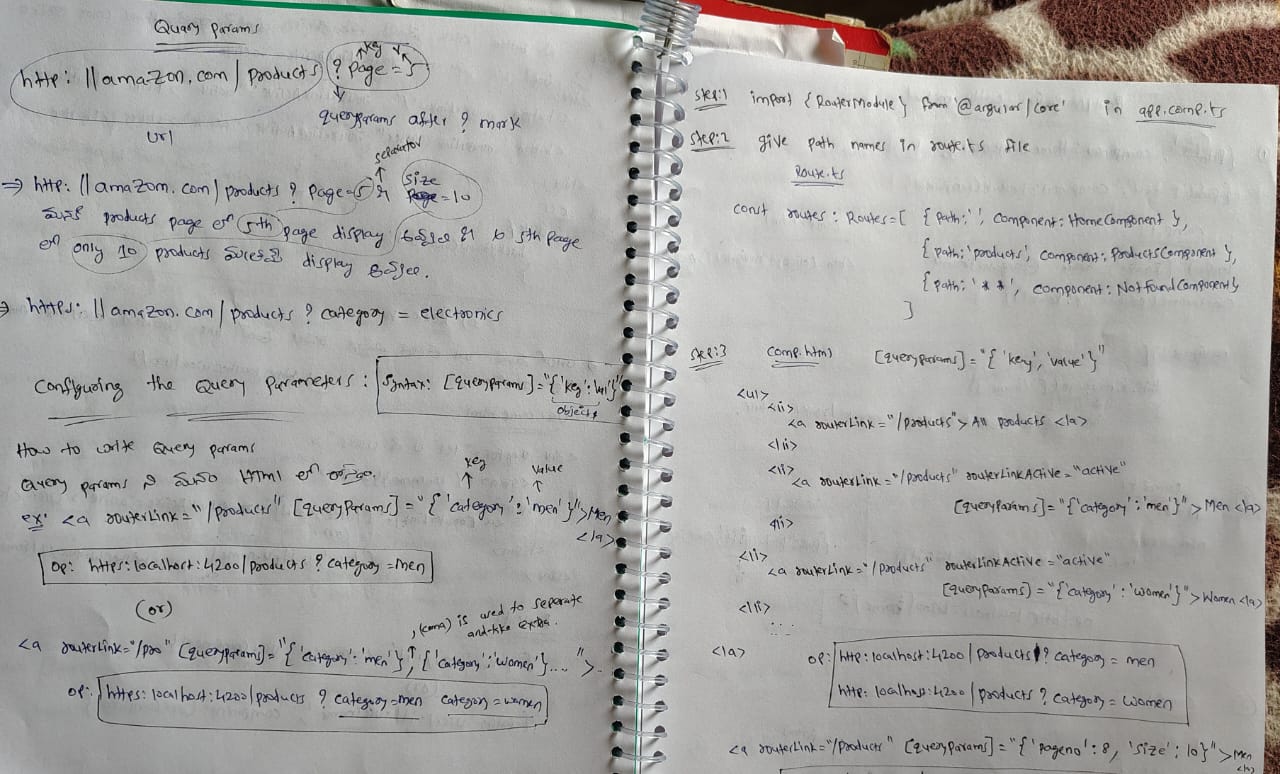 Query Params
key v
http: //amazon.com/products ? page = 5
queryparams after ? mark
url
separator
⇒ http: //amazom.com/products ? Page=5 & size = 10
మనకి products page లో 5th page display అవ్వాలి &
5th page
లో only 10 products మాత్రమే display అవ్వాలి.
⇒ https: //amazon.com/products ? category = electronics
Configuring the Query Parameters : Syntax: [queryparams]="{'key':'val'}"
objects
How to write Query params
Query params ని మనం HTML లో రాస్తాం.
key value
ex: <a routerLink="/products" [queryParams]="{'category':'men'}">Men
</a>
Op: https:localhost:4200/products ? category =men
(or)
, (coma) is used to seperate
and take extra.
<a routerLink="/pro" [queryparam]="{'category':'men'}, {'category':'women'}....">.
op: https:localhost:4200/products ? category=men category=women
Step:1 import {RouterModule} from '@angular/core' in app.comp.ts
Step:2 give path names in route.ts file
Route.ts
const routes : Routes=[ {path:'', component: HomeComponent },
{path:'products', component: ProductsComponent },
{path:'**', component: NotFoundComponent}
]
Step:3 comp.html [queryparams]="{'key','value'}"
<ul>
<li>
<a routerLink="/products"> All products </a>
</li>
<li>
<a routerLink="/products" routerLinkActive="active"
[queryParams]="{'category':'men'}"> Men </a>
</li>
<li>
<a routerLink="/products" routerLinkActive="active"
[queryparams)="{'category':'women'}">Women </a>
</li>
....
</a>
op: http:localhost:4200/products ? category = men
http: localhost:4200/products ? category = women
<a routerLink="/products" [queryparams]="{'pageno':8, 'size':10}">Men
</a>